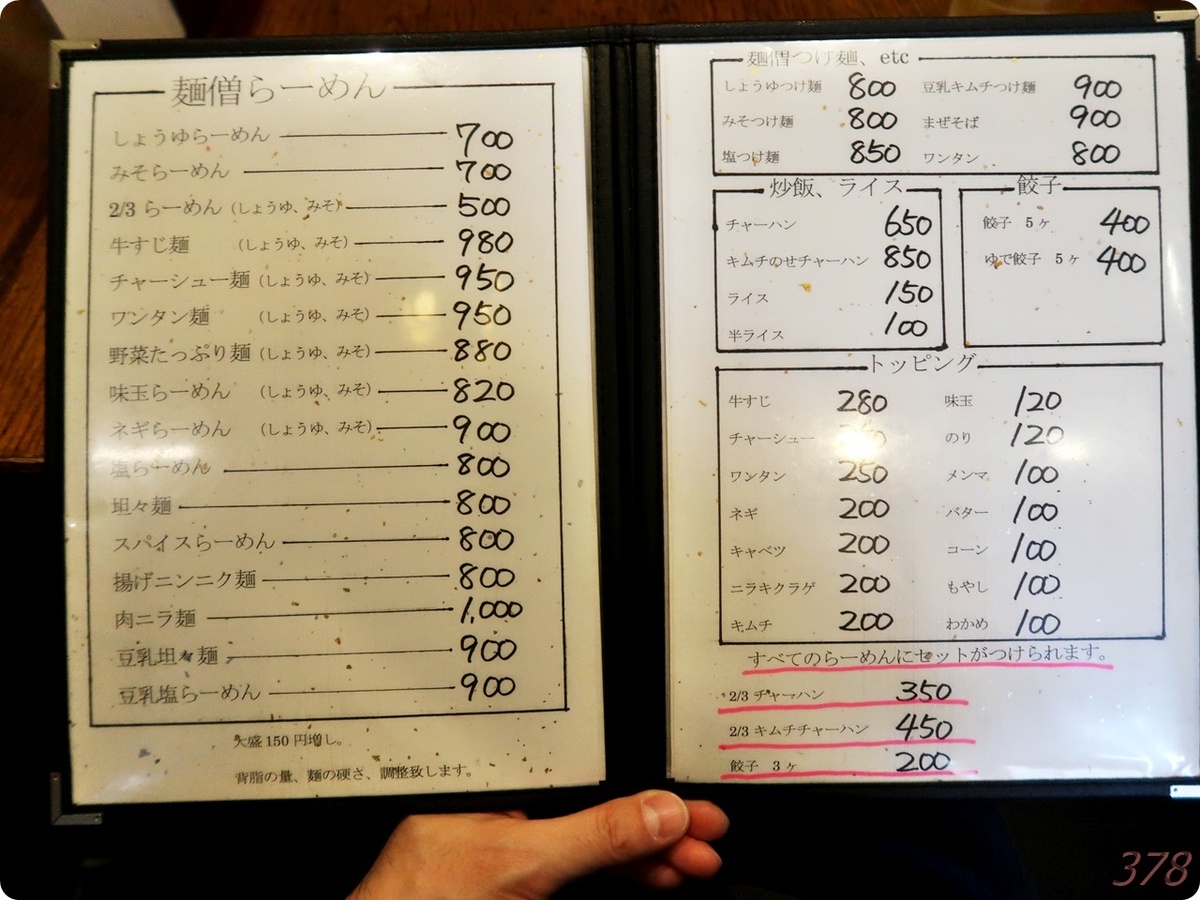 麺僧らーめん
しょうゆらーめん 700
みそらーめん 700
2/3 らーめん (しょうゆ、みそ) 500
牛すじ麺 (しょうゆ、みそ) 980
チャーシュー麺 (しょうゆ、みそ) 950
ワンタン麺 (しょうゆ、みそ) 950
野菜たっぷり麺 (しょうゆ、みそ) 880
味玉らーめん (しょうゆ、みそ) 820
ネギらーめん (しょうゆ、みそ) 900
塩らーめん 800
坦々麺 800
スパイスらーめん 800
揚げニンニク麺 800
肉ニラ麺 1,000
豆乳坦々麺 900
豆乳塩らーめん 900
大盛150円増し。
背脂の量、麺の硬さ、調整致します。
麺僧つけ麺、etc
しょうゆつけ麺 800 豆乳キムチつけ麺 900
みそつけ麺 800 まぜそば 900
塩つけ麺 850 ワンタン 800
炒飯、ライス
チャーハン 650
キムチのせチャーハン 850
ライス 150
半ライス 100
餃子
餃子 5ヶ 400
ゆで餃子 5ヶ 400
トッピング
牛すじ 280 味玉 120
チャーシュー のり 120
ワンタン 250 メンマ 100
ネギ 200 バター 100
キャベツ 200 コーン 100
ニラキクラゲ 200 もやし 100
キムチ 200 わかめ 100
すべてのらーめんにセットがつけられます。
2/3 チャーハン 350
2/3 キムチチャーハン 450
餃子 3ヶ 200
378